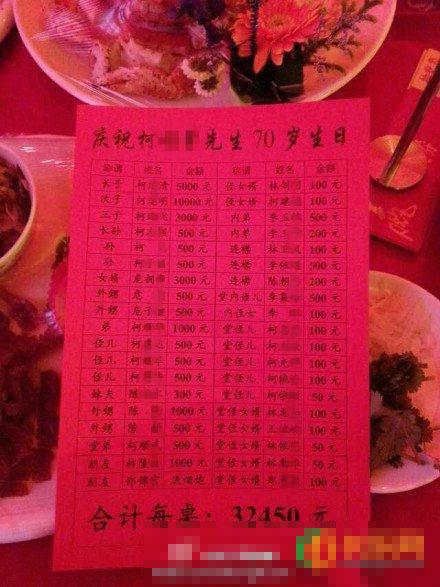 庆祝柯 先生70岁生日
称谓 姓名 金额 称谓 姓名 金额
长子 柯 清 5000元 侄女婿 林剑 100元
次子 柯 明 10000元 侄女婿 柯建 100元
三子 柯 飞 3000元 内弟 李玉 500元
长孙 柯 500元 内弟 李 200元
孙 柯 500元 连襟 林卫 100元
孙 柯 500元 连襟 李依 500元
女婿 危拥 3000元 连襟 陈朝 200元
外甥 危 500元 堂内侄儿 李象 500元
外甥 危子 500元 内侄女 李 100元
弟 柯 1000元 堂侄儿 柯 100元
侄儿 柯 500元 堂侄儿 柯 100元
侄儿 柯 500元 堂侄儿 柯光 100元
侄儿 柯 500元 堂侄儿 柯依 100元
妹夫 陈 300元 堂侄儿 柯依 50元
外甥 陈 1000元 堂侄女婿 林龙 100元
外甥 陈 500元 堂侄女婿 王 100元
堂弟 柯顺 500元 堂侄女婿 林依 50元
朋友 林隆 1000元 堂侄女婿 林 50元
朋友 郑锦 送烟炮 堂侄女婿 郑 100元
合计每桌：32450元